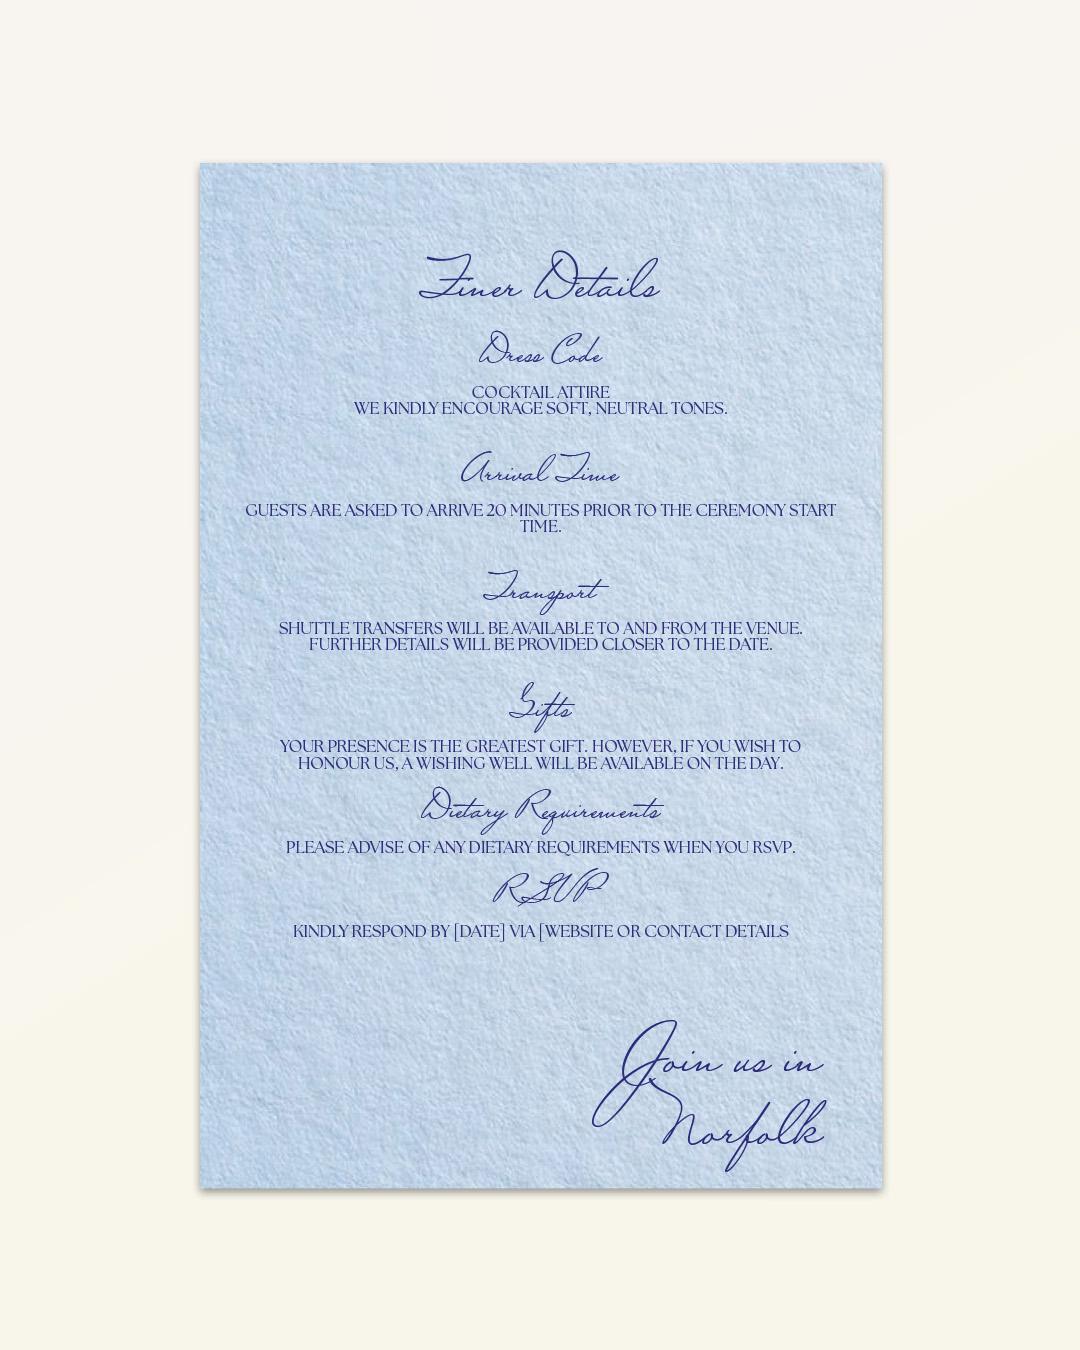 Finer Details
Dress Code
COCKTAIL ATTIRE
WE KINDLY ENCOURAGE SOFT, NEUTRAL TONES.
Arrival Time
GUESTS ARE ASKED TO ARRIVE 20 MINUTES PRIOR TO THE CEREMONY START
TIME.
Transport
SHUTTLE TRANSFERS WILL BE AVAILABLE TO AND FROM THE VENUE.
FURTHER DETAILS WILL BE PROVIDED CLOSER TO THE DATE.
Gifts
YOUR PRESENCE IS THE GREATEST GIFT. HOWEVER, IF YOU WISH TO
HONOUR US, A WISHING WELL WILL BE AVAILABLE ON THE DAY.
Dietary Requirements
PLEASE ADVISE OF ANY DIETARY REQUIREMENTS WHEN YOU RSVP.
RSVP
KINDLY RESPOND BY [DATE] VIA [WEBSITE OR CONTACT DETAILS
Join us in
Norfolk